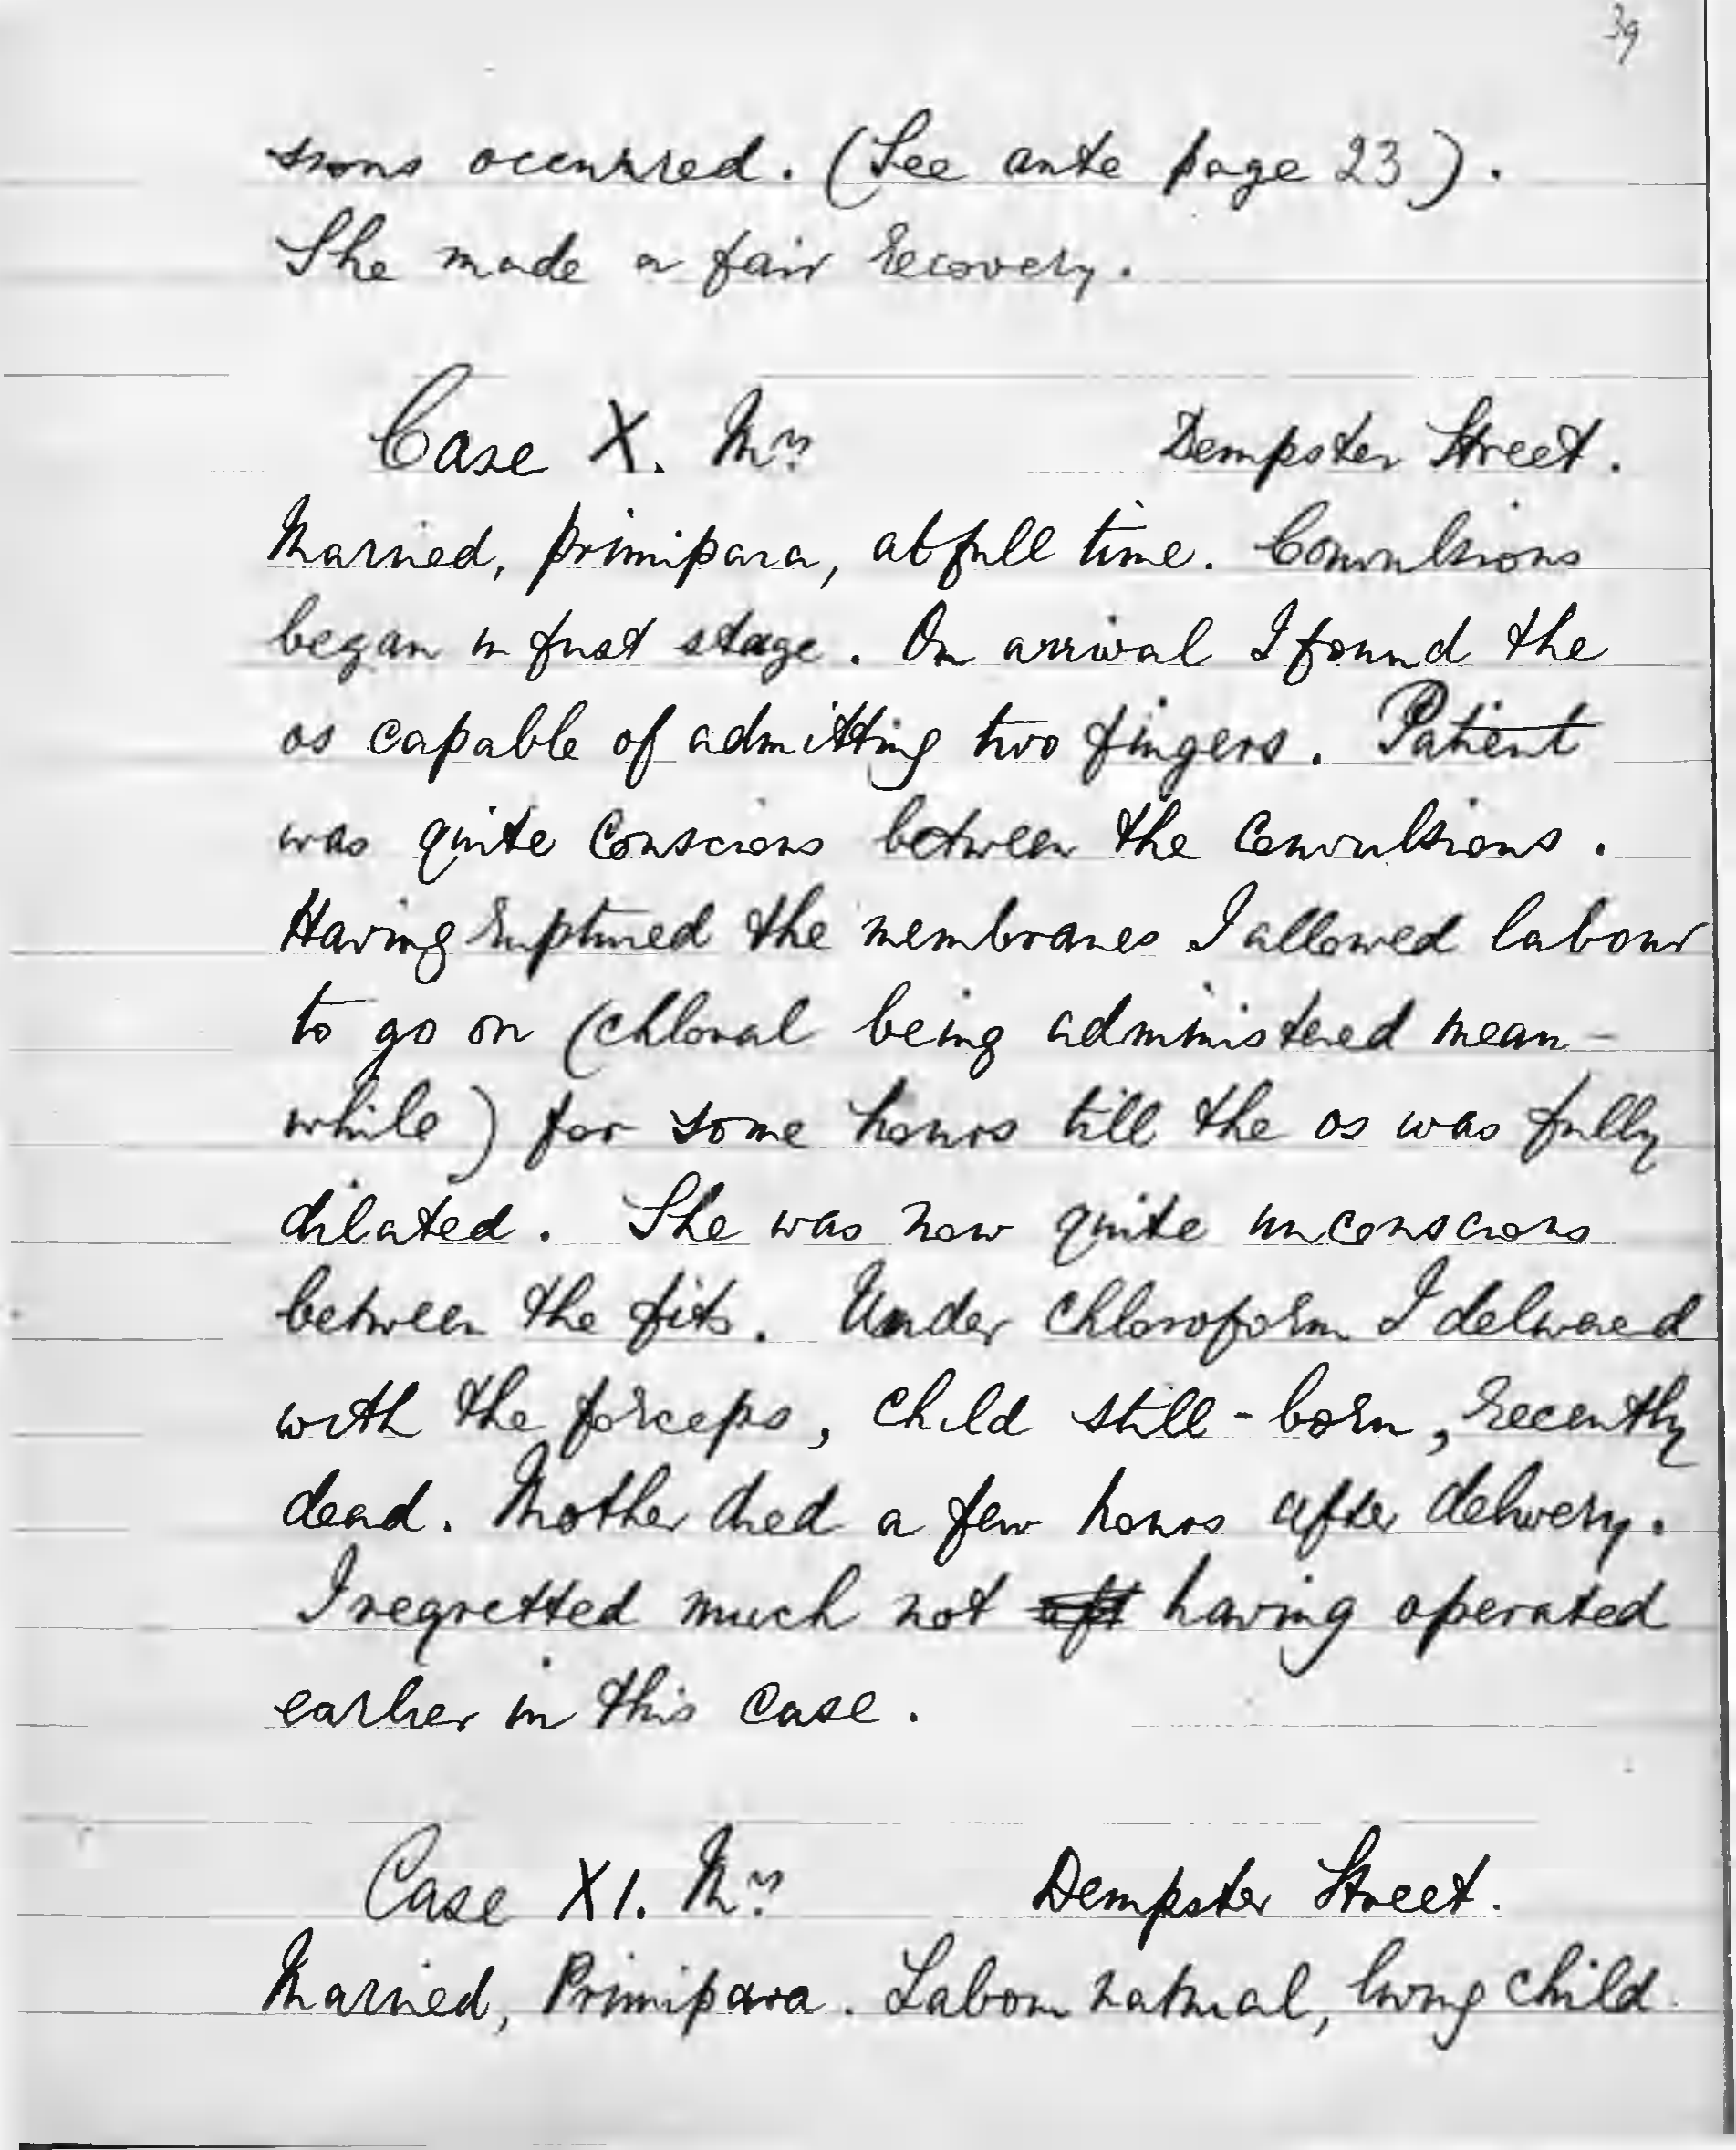 39
sions occurred. (See ante page 23).
She made a fair recovery.
Case X. Mrs Dempster Street.
Married, primipara, at full time. Convulsions
began in first stage. On arrival I found the
os capable of admitting two fingers. Patient
was quite conscious between the convulsions.
Having ruptured the membranes I allowed labour
to go on (chloral being administered mean-
while) for some hours till the os was fully
dilated. She was now quite unconscious
between the fits. Under chloroform I delivered
with the forceps, child still-born, recently
dead. Mother died a few hours after delivery.
I regretted much not having operated
earlier in this case.
Case XI. Mrs Dempster Street.
Married, Primipara. Labour natural, living child